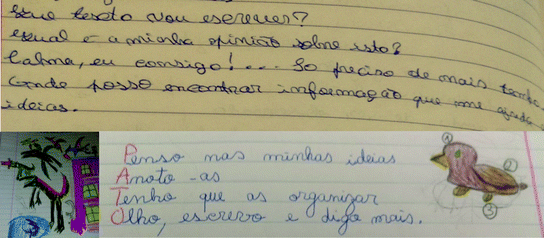 Que texto vou escrever?
Qual é a minha opinião sobre isto?
Calma, eu consigo!... Só preciso de mais tempo.
Onde posso encontrar informação que me ajude
ideias.
Penso nas minhas ideias
Anoto-as
Tenho que as organizar
Olho, escrevo e digo mais.
1
2
3